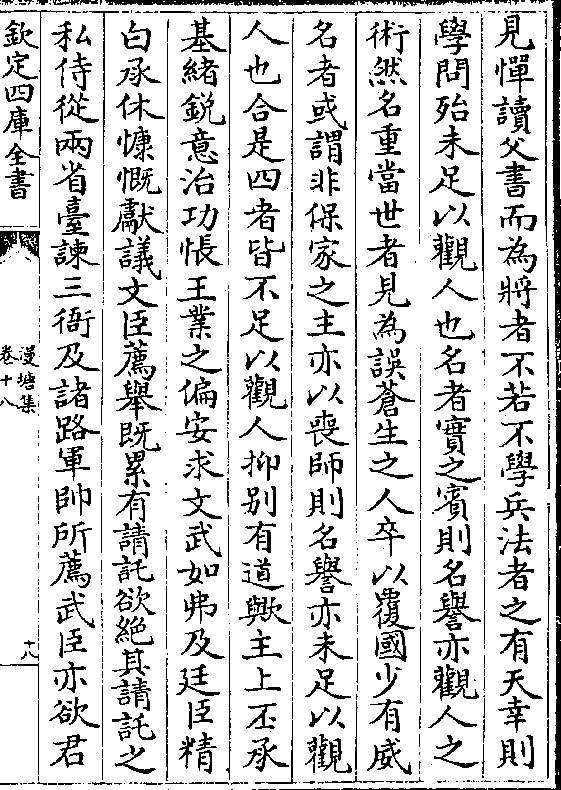 見憚讀父書而為將者不若不學兵法者之有天幸則
學問殆未足以觀人也名者實之賓則名譽亦觀人之
術然名重當世者見為誤蒼生之人卒以覆國少有威
名者或謂非保家之主亦以喪師則名譽亦未足以觀
人也合是四者皆不足以觀人抑别有道歟主上丕承
基緒鋭意治功悵王業之偏安求文武如弗及廷臣精
白承休慷慨獻議文臣薦舉既累有請託欲絶其請託之
私侍從兩省臺諫三衙及諸路軍帥所薦武臣亦欲君
欽定四庫全書
漫塘集
卷十八
十八